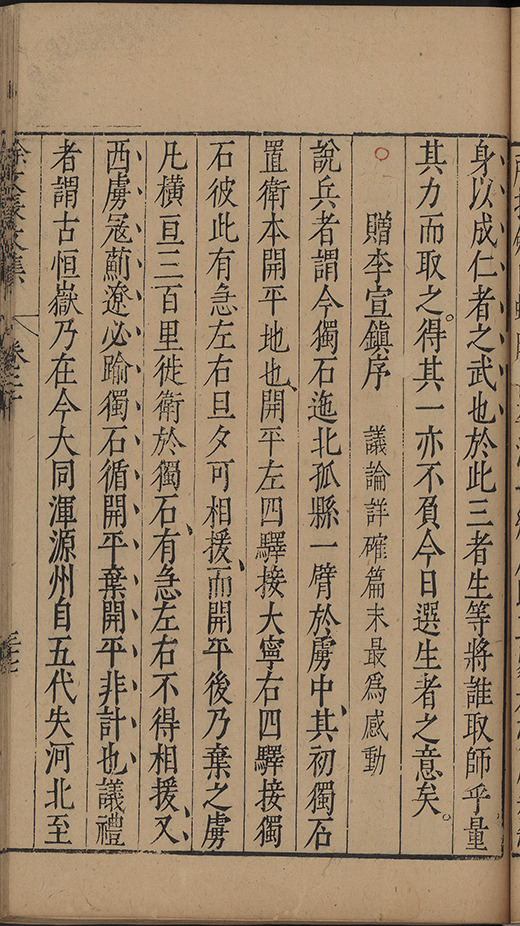 身以成仁者之武也於此三者生等將誰取師乎量
其力而取之得其一亦不負今日選生者之意矣
贈李宣鎮序 議論詳確篇末最為感動
說兵者謂今獨石迤北孤縣一臂於虜中其初獨石
置衛本開平地也開平左四驛接大寧右四驛接獨
石彼此有急左右旦夕可相援而開平後乃棄之虜
凡橫亘三百里徙衛於獨石有急左右不得相援又
西虜冦薊遼必踰獨石循開平棄開平非計也議禮
者謂古恒嶽乃在今大同渾源州自五代失河北至
徐文長文集 卷二十